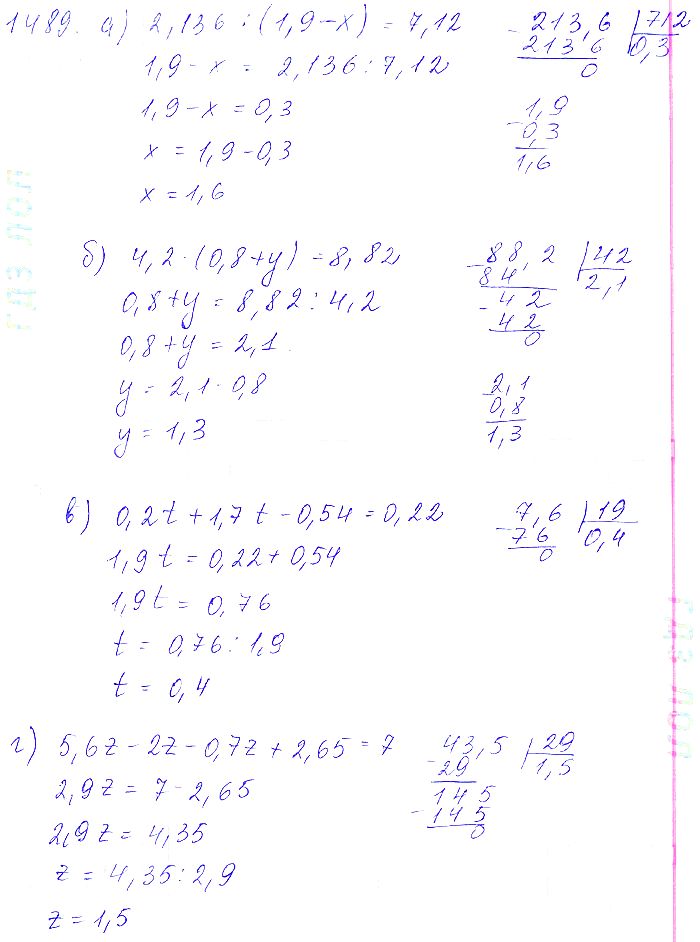 1489. а) 2,136 : (1,9 - x) = 7,12
1,9 - x = 2,136 : 7,12
1,9 - x = 0,3
x = 1,9 - 0,3
x = 1,6
213,6 | 712
2136 0,3
0
1,9
- 0,3
1,6
б) 4,2 · (0,8 + y) = 8,82
0,8 + y = 8,82 : 4,2
0,8 + y = 2,1
y = 2,1 - 0,8
y = 1,3
- 88,2 | 42
84 2,1
- 42
42
0
2,1
0,8
1,3
в) 0,2t + 1,7t - 0,54 = 0,22
1,9t = 0,22 + 0,54
1,9t = 0,76
t = 0,76 : 1,9
t = 0,4
7,6 | 19
- 76 0,4
0
г) 5,6z - 2z - 0,7z + 2,65 = 7
2,9z = 7 - 2,65
2,9z = 4,35
z = 4,35 : 2,9
z = 1,5
43,5 | 29
- 29 1,5
145
- 145
0